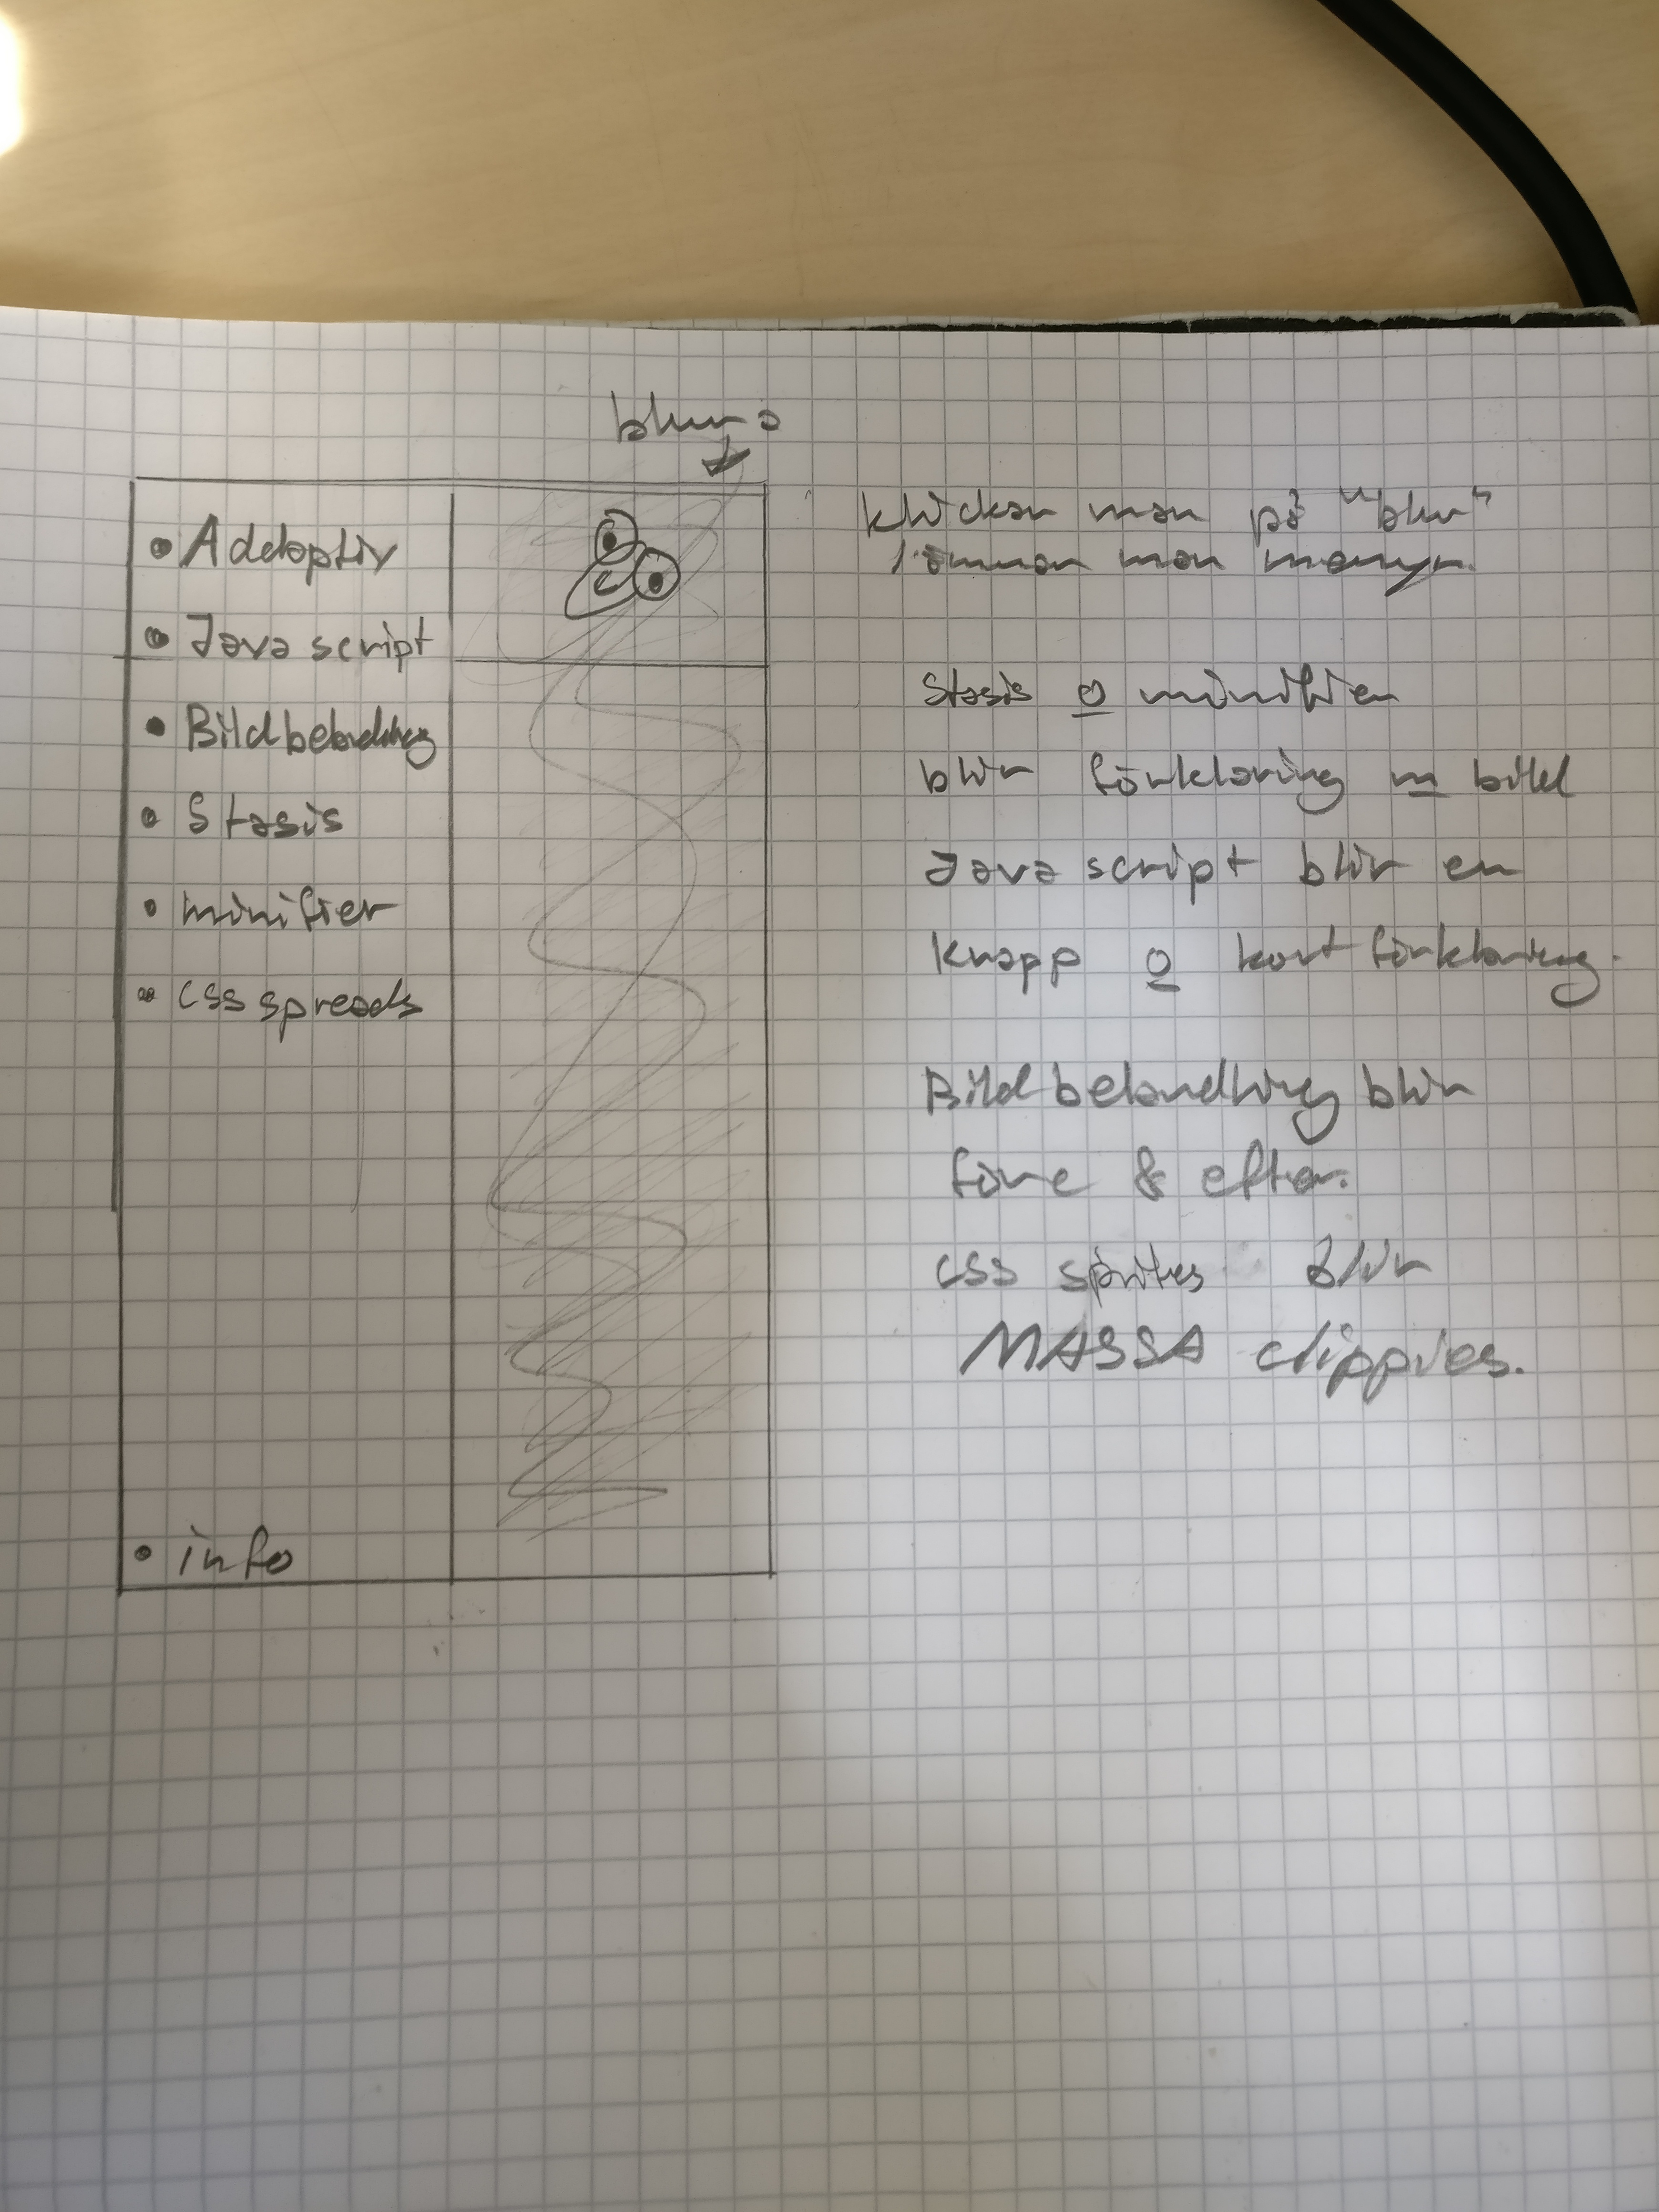 blurra
• Addaptiv
• Java script
• Bildbehandling
• Stasis
• minifier
• css spreads
• info
klickar man på "blur"
lämnar man menyn.
Stasis o minifier
blir förklaring m bild
Java script blir en
knapp o kort förklaring.
Bildbehandling blir
före & efter.
css sprites blir
MASSA clippies.